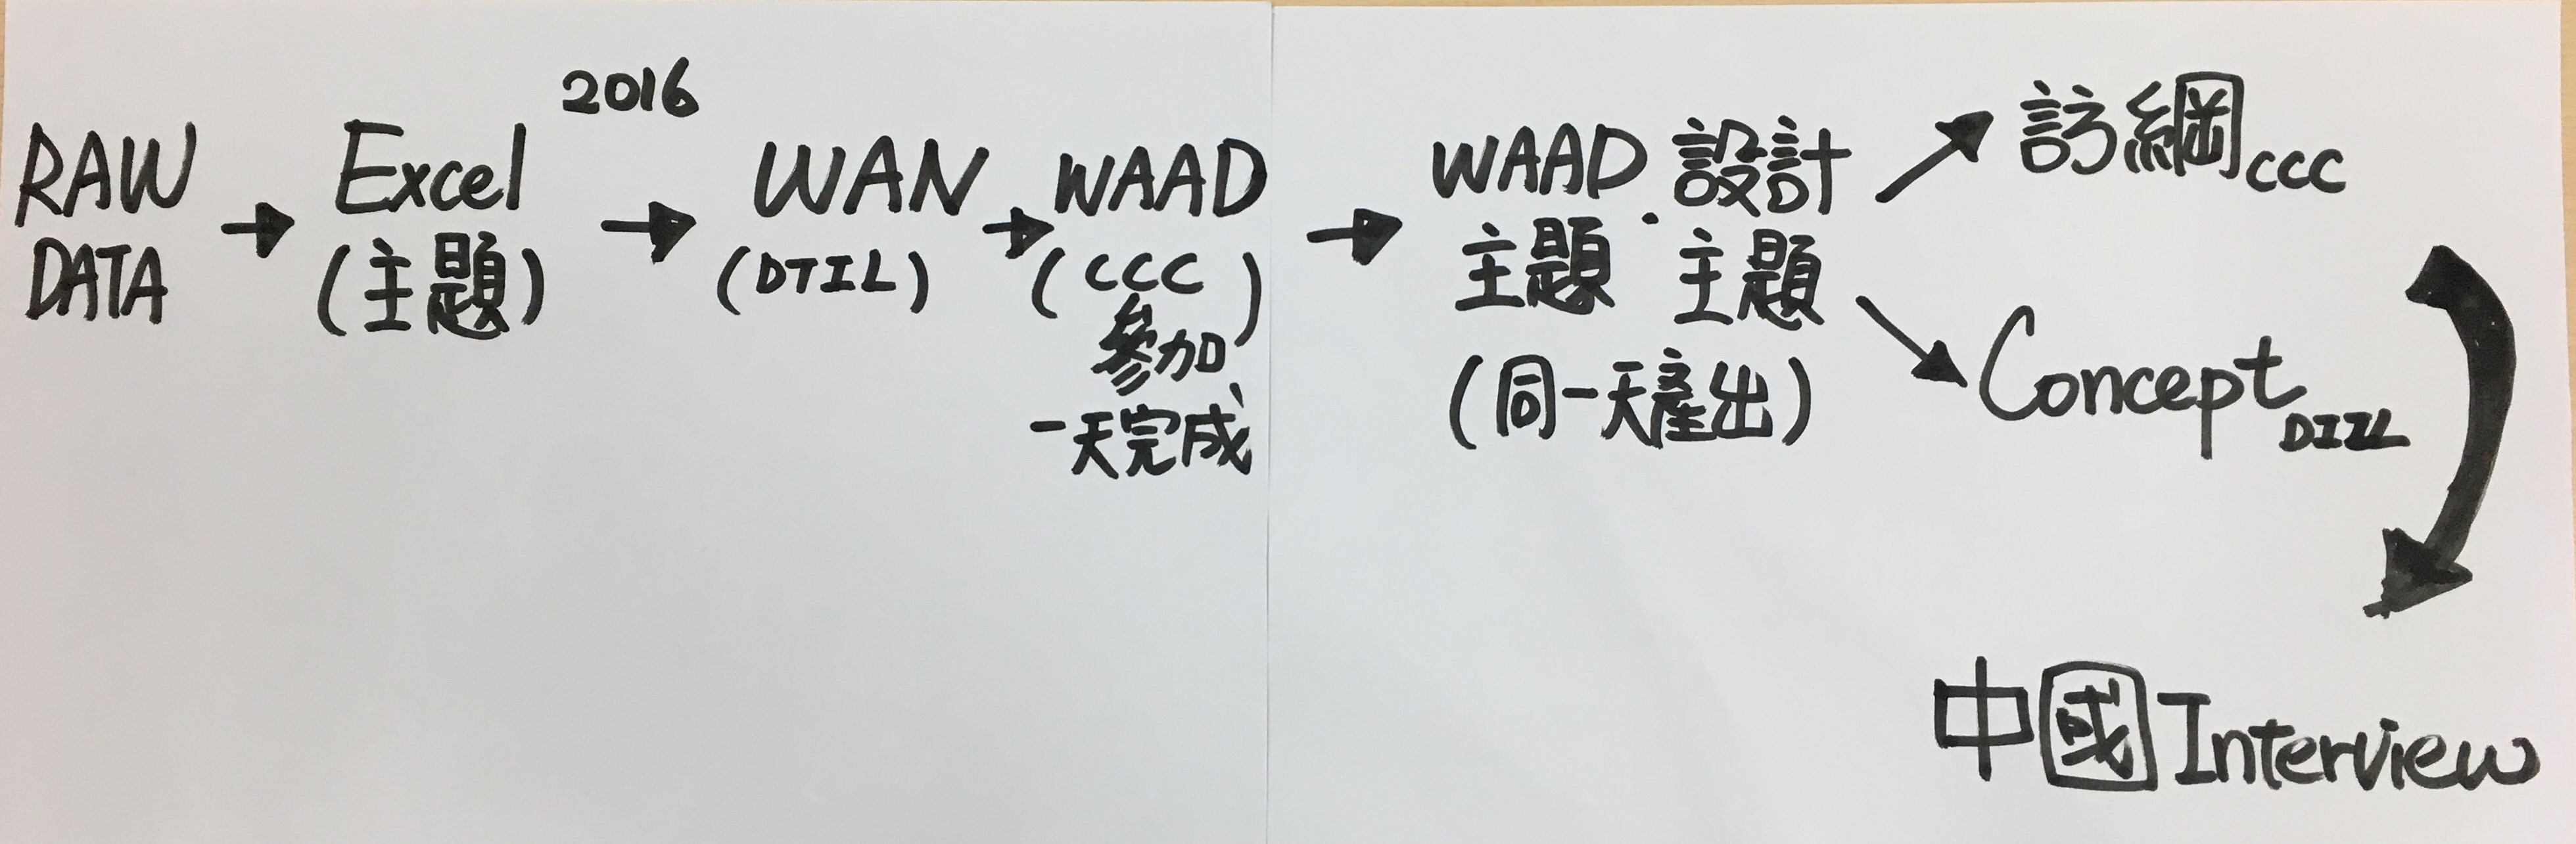 2016
RAW
DATA
→
Excel
(主題)
→
WAN
(DTIL)
→
WAAD
(CCC
參加、)
一天完成
→
WAAD.設計
主題 主題
(同一天產出)
訪綱CCC
Concept
中國Interview